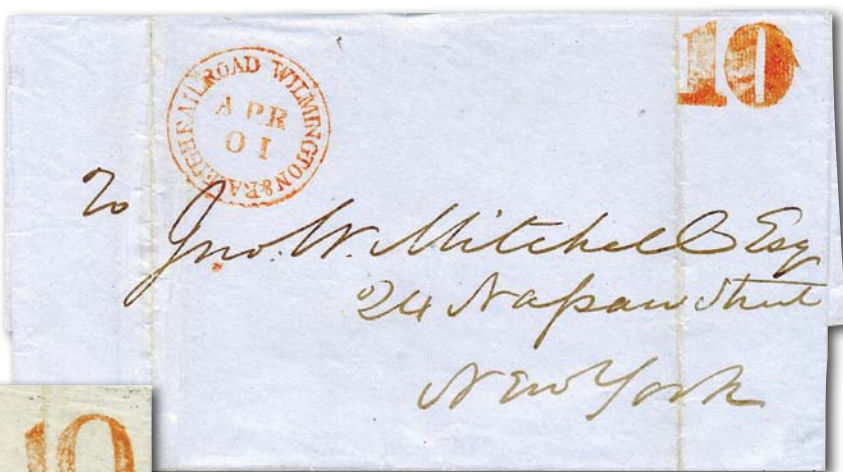 WILMINGTON & RALEIGH RAILROAD
APR
01
10
To
Jno. W. Mitchell Esq
24 Nassau Street
New York
10